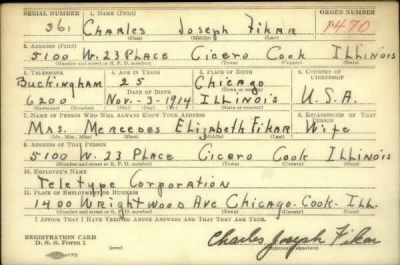 SERIAL NUMBER 1. NAME (Print) ORDER NUMBER
361 Charles Joseph Fikar 1470
(First) (Middle) (Last)
2. ADDRESS (Print)
5100 W. 23 PLACE Cicero Cook ILLINOIS
(Number and street or R. F. D. number) (Town) (County) (State)
3. TELEPHONE 4. AGE IN YEARS 5. PLACE OF BIRTH 6. COUNTRY OF CITIZENSHIP
Buckingham 25 Chicago
(Town or county)
DATE OF BIRTH
6200 Nov-3-1914 ILLINOIS U.S.A.
(Mo.) (Day) (Yr.) (State or country)
7. NAME OF PERSON WHO WILL ALWAYS KNOW YOUR ADDRESS 8. RELATIONSHIP OF THAT PERSON
Mrs. Mercedes Elizabeth Fikar Wife
(Mr., Mrs., Miss) (First) (Middle) (Last)
9. ADDRESS OF THAT PERSON
5100 W. 23 PLACE Cicero Cook ILLINOIS
(Number and street or R. F. D. number) (Town) (County) (State)
10. EMPLOYER'S NAME
Teletype Corporation
11. PLACE OF EMPLOYMENT OR BUSINESS
1400 Wrightwood Ave Chicago-Cook-Ill.
(Number and street or R. F. D. number) (Town) (County) (State)
I AFFIRM THAT I HAVE VERIFIED ABOVE ANSWERS AND THAT THEY ARE TRUE.
REGISTRATION CARD
D. S. S. Form 1
Charles Joseph Fikar
(Registrant's signature)